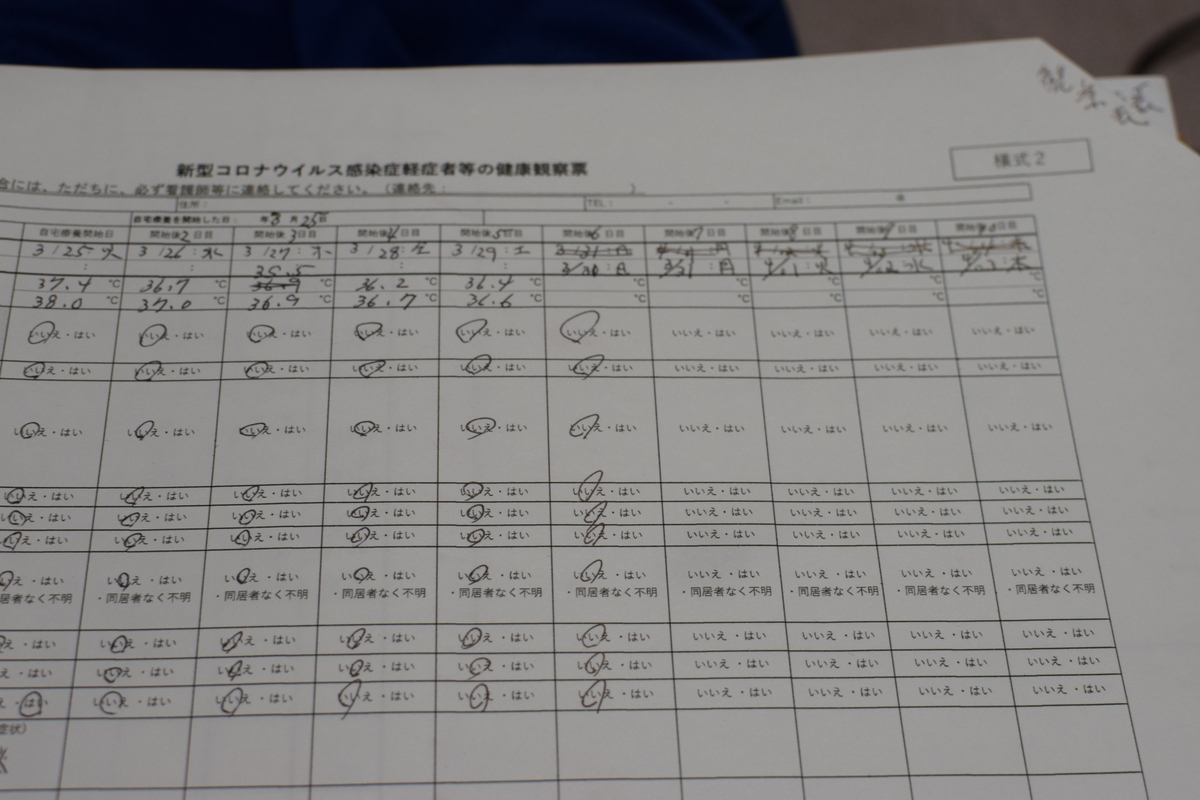 様式2
新型コロナウイルス感染症軽症者等の健康観察票
合には、ただちに、必ず看護師等に連絡してください。（連絡先： ）
住所： TEL： - - Email： @
自宅療養を開始した日： 年 3 月 25 日
自宅療養開始日 開始後2日目 開始後3日目 開始後4日目 開始後5日目 開始後6日目 開始後7日目 開始後8日目 開始後9日目
3/25 火 3/26:水 3/27:木 3/28:金 3/29:土
: : 36.5 : : 3/30:日 3/31:月 4/1:火 4/2 水 木
37.4 ℃ 36.7 ℃ 36.9 ℃ 36.2 ℃ 36.4 ℃ ℃ ℃ ℃ ℃ ℃
38.0 ℃ 37.0 ℃ 36.9 ℃ 36.7 ℃ 36.6 ℃ ℃ ℃ ℃ ℃ ℃
いいえ・はい いいえ・はい いいえ・はい いいえ・はい いいえ・はい いいえ・はい いいえ・はい いいえ・はい いいえ・はい いいえ・はい
いいえ・はい いいえ・はい いいえ・はい いいえ・はい いいえ・はい いいえ・はい いいえ・はい いいえ・はい いいえ・はい いいえ・はい
いいえ・はい いいえ・はい いいえ・はい いいえ・はい いいえ・はい いいえ・はい いいえ・はい いいえ・はい いいえ・はい いいえ・はい
いいえ・はい いいえ・はい いいえ・はい いいえ・はい いいえ・はい いいえ・はい いいえ・はい いいえ・はい いいえ・はい いいえ・はい
いいえ・はい いいえ・はい いいえ・はい いいえ・はい いいえ・はい いいえ・はい いいえ・はい いいえ・はい いいえ・はい いいえ・はい
いいえ・はい いいえ・はい いいえ・はい いいえ・はい いいえ・はい いいえ・はい いいえ・はい いいえ・はい いいえ・はい いいえ・はい
いえ・はい いいえ・はい いいえ・はい いいえ・はい いいえ・はい いいえ・はい いいえ・はい いいえ・はい いいえ・はい いいえ・はい
居者なく不明 ・同居者なく不明 ・同居者なく不明 ・同居者なく不明 ・同居者なく不明 ・同居者なく不明 ・同居者なく不明 ・同居者なく不明 ・同居者なく不明 ・同居者なく不明
え・はい いいえ・はい いいえ・はい いいえ・はい いいえ・はい いいえ・はい いいえ・はい いいえ・はい いいえ・はい いいえ・はい
え・はい いいえ・はい いいえ・はい いいえ・はい いいえ・はい いいえ・はい いいえ・はい いいえ・はい いいえ・はい いいえ・はい
え・はい いいえ・はい いいえ・はい いいえ・はい いいえ・はい いいえ・はい いいえ・はい いいえ・はい いいえ・はい いいえ・はい
症状）